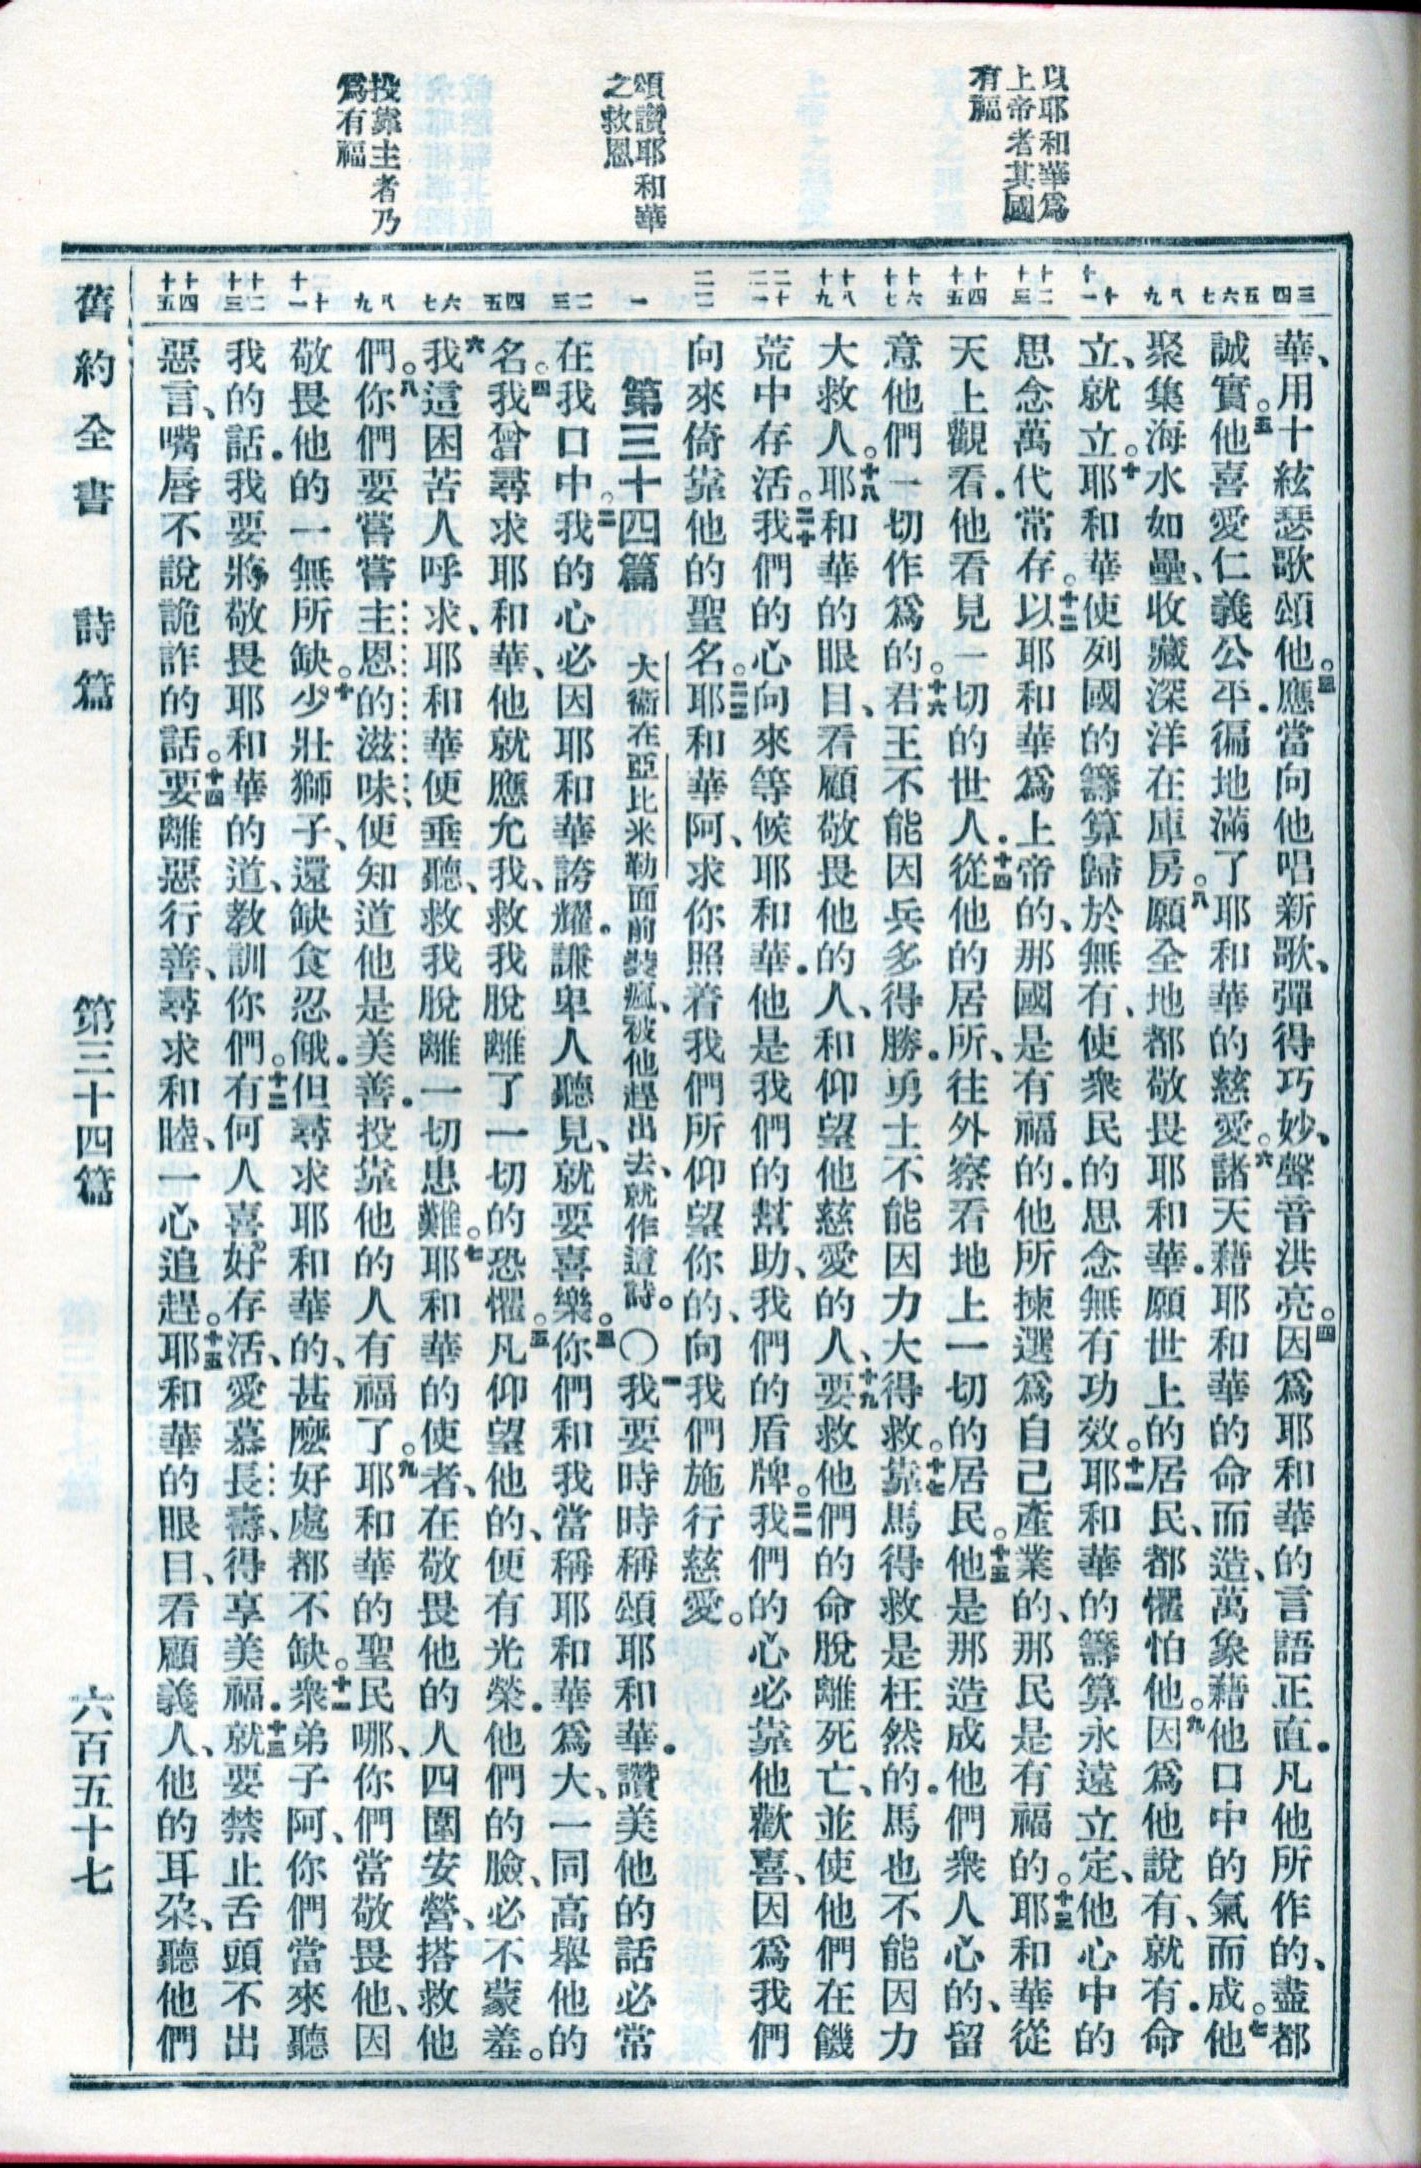 以耶和華爲
上帝者其國
有福
頌讚耶和華
之救恩
投靠主者乃
爲有福
三 四
五 六 七
八 九
十 十一
十二 十三
十四 十五
十六 十七
十八 十九
二十 二一
二二
一
二 三
四 五
六 七
八 九
十 十一
十二 十三
十四 十五
華、用十絃瑟歌頌他。三應當向他唱新歌、彈得巧妙、聲音洪亮。四因爲耶和華的言語正直.凡他所作的、盡都
誠實。五他喜愛仁義公平.徧地滿了耶和華的慈愛。六諸天藉耶和華的命而造、萬象藉他口中的氣而成。七他
聚集海水如壘、收藏深洋在庫房。八願全地都敬畏耶和華.願世上的居民、都懼怕他。九因爲他說有、就有.命
立、就立。十耶和華使列國的籌算歸於無有、使衆民的思念無有功效。十一耶和華的籌算永遠立定、他心中的
思念萬代常存。十二以耶和華爲上帝的、那國是有福的.他所揀選爲自己產業的、那民是有福的。十三耶和華從
天上觀看.他看見一切的世人.十四從他的居所、往外察看地上一切的居民。十五他是那造成他們衆人心的、留
意他們一切作爲的。十六君王不能因兵多得勝.勇士不能因力大得救。十七靠馬得救是枉然的.馬也不能因力
大救人。十八耶和華的眼目、看顧敬畏他的人、和仰望他慈愛的人、十九要救他們的命脫離死亡、並使他們在饑
荒中存活。二十我們的心向來等候耶和華.他是我們的幫助、我們的盾牌。二一我們的心必靠他歡喜、因爲我們
向來倚靠他的聖名。二二耶和華阿、求你照着我們所仰望你的、向我們施行慈愛。
第三十四篇 大衛在亞比米勒面前裝瘋、被他趕出去、就作這詩。〇一我要時時稱頌耶和華.讚美他的話必常
在我口中。二我的心必因耶和華誇耀.謙卑人聽見、就要喜樂。三你們和我當稱耶和華爲大、一同高舉他的
名。四我曾尋求耶和華、他就應允我、救我脫離了一切的恐懼。五凡仰望他的、便有光榮.他們的臉、必不蒙羞。
六我這困苦人呼求、耶和華便垂聽、救我脫離一切患難。七耶和華的使者、在敬畏他的人四圍安營、搭救他
們。八你們要嘗嘗主恩的滋味、便知道他是美善.投靠他的人有福了。九耶和華的聖民哪、你們當敬畏他、因
敬畏他的一無所缺。十少壯獅子、還缺食忍餓.但尋求耶和華的、甚麼好處都不缺。十一衆弟子阿、你們當來聽
我的話.我要將敬畏耶和華的道、教訓你們。十二有何人喜好存活、愛慕長壽、得享美福.十三就要禁止舌頭不出
惡言、嘴唇不說詭詐的話。十四要離惡行善、尋求和睦、一心追趕。十五耶和華的眼目、看顧義人、他的耳朶、聽他們
舊約全書 詩篇 第三十四篇 六百五十七